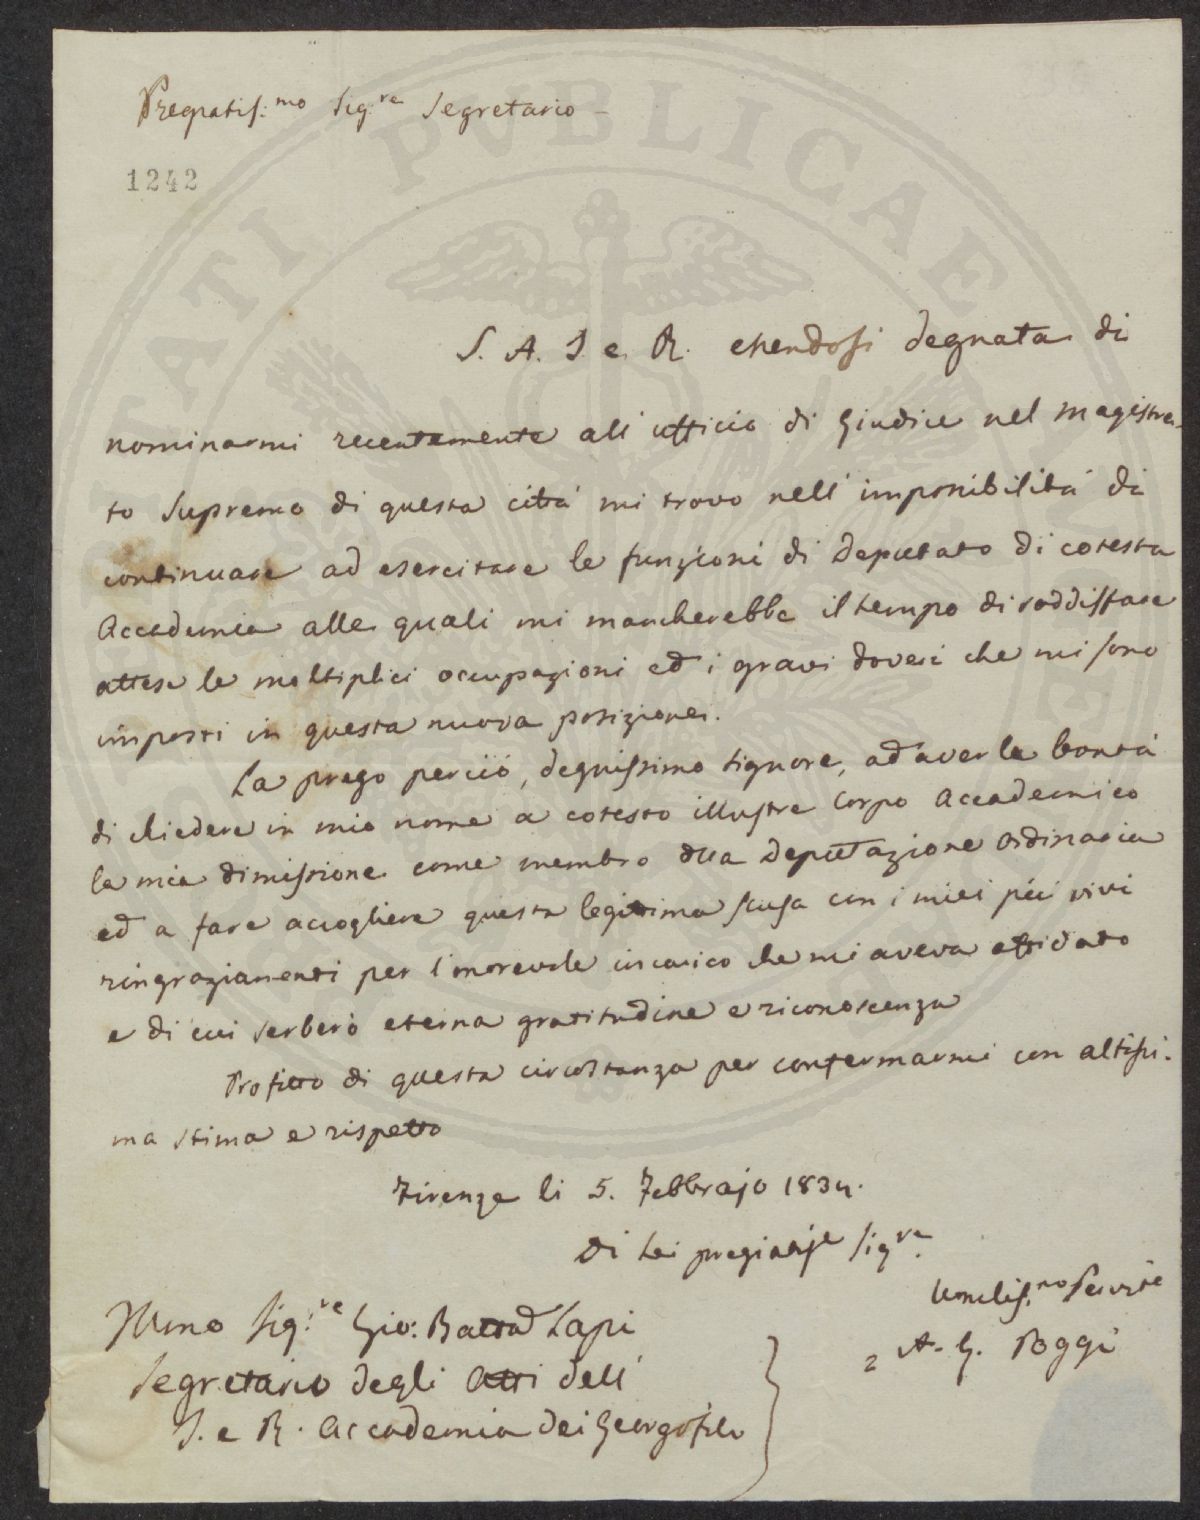 Pregiatis.mo Sig.re Segretario -
1242
S. A. I. e. R. essendosi degnata di
nominarmi recentemente all'ufficio di Giudice nel Magistra-
to Supremo di questa città mi trovo nell'impossibilità di
continuare ad esercitare le funzioni di Deputato di cotesta
Accademia alle quali mi mancherebbe il tempo di soddisfare
attese le moltiplici occupazioni ed i gravi doveri che mi sono
imposti in questa nuova posizione.
La prego perciò, degnissimo Signore, ad aver la bontà
di chiedere in mio nome a cotesto illustre Corpo Accademico
la mia dimissione come membro della Deputazione Ordinaria
ed a fare accogliere questa legittima scusa con i miei più vivi
ringraziamenti per l'onorevole incarico che mi aveva affidato
e di cui serberò eterna gratitudine e riconoscenza
Profitto di questa circostanza per confermarmi con altissi-
ma stima e rispetto
Firenze li 5. Febbrajo 1834.
Di Lei Sig.re
Umilis.mo Servite
A. G. Poggi
Illmo Sig.re Gio: Batta Lapi
Segretario degli Atti dell'
I. e R. Accademia dei Georgofili
PVBLICAE